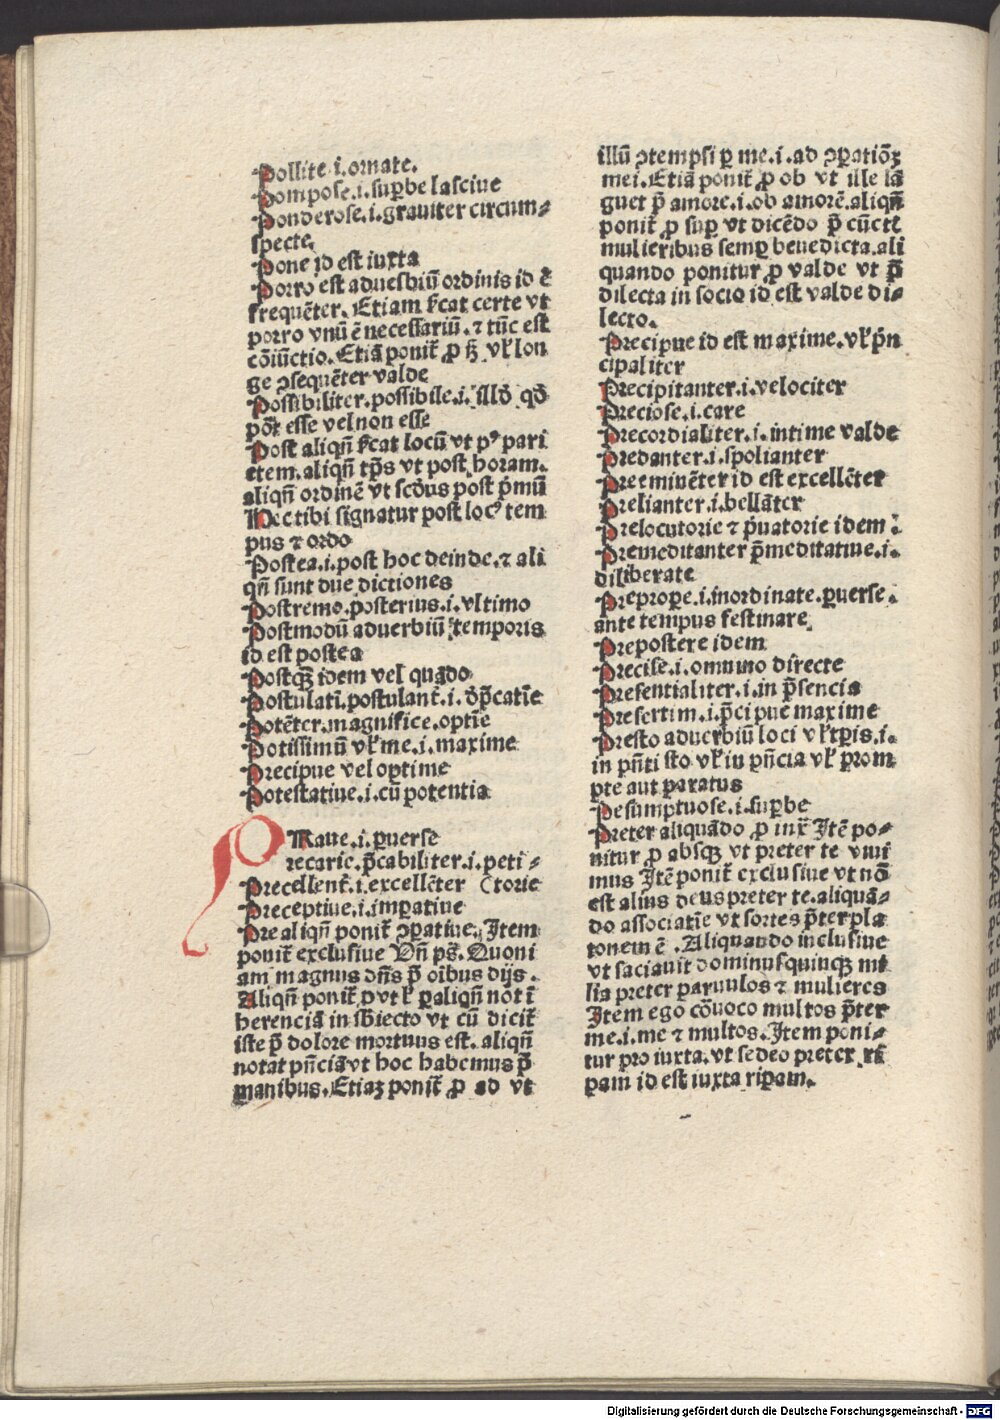 Pollite.i.ornate.
Pompose.i.suꝑbe lasciue
Ponderose.i.grauiter circum⸗
specte.
Pone id est iuxta
Porro est aduerbiū ordinis id ē
frequēter. Etiam ſcat certe vt
porro vnū ē necessariū.⁊ tūc est
cōiūctio. Etiā ponit̄ ꝓ sꝫ vl̓ lon
ge ↄsequēter valde
Possibiliter.possibile.i.illd̓ qd̓
pōt esse vel non esse
Post aliqn̄ ſcat locū vt pꝰ pari
etem.aliqn̄ tp̄s vt post horam.
aliqn̄ ordinē vt scd̓us post p̄mū
Nec tibi signatur post locꝰ tem
pus ⁊ ordo
Postea.i.post hoc deinde.⁊ ali
qn̄ sunt due dictiones
Postremo.posterius.i.vltimo
Postmodū aduerbiū temporis
id est postea
Postqꝫ idem vel quādo
Postulati.postulant̄.i.dp̄catīe
Potēter.magnifice.optīe
Potissimū vl̓ me.i.maxime
Precipue vel optime
Potestatiue.i.cū potentia
PRaue.i.ꝑuerse
recarie.p̄cabiliter.i.peti⸗
Precellent̄.i.excellēter (torie
Preceptiue.i.imꝑatiue
Pre aliqn̄ ponit̄ ↄꝑatiue. Item
ponit̄ exclusiue Vn̄ ps̄. Quoni
am magnus dn̄s p̄ oībus dijs.
Aliqn̄ ponit̄ ꝓ vt l̓ ꝑ aliqn̄ not ī
herenciā in sbiecto vt cū dicit̄
iste p̄ dolore mortuus est. aliqn̄
notat pn̄ciā vt hoc habemus p̄
manibus. Etiaꝫ ponit̄ ꝓ ad vt
illū ↄtempsi ꝑ me.i.ad ↄꝑatiōꝫ
mei. Etiā ponit̄ ꝓ ob vt ille lā
guet p̄ amore.i.ob amorē.aliqn̄
ponit̄ ꝓ suꝑ vt dicēdo p̄ cūctꝭ
mulieribus semꝑ benedicta.ali
quando ponitur ꝓ valde vt p̄
dilecta in socio id est valde di⸗
lecto.
Precipue id est maxime.vl̓ p̄n
cipaliter
Precipitanter.i.velociter
Preciose.i.care
Precordialiter.i.intime valde
Predanter.i.spolianter
Preeminēter id est excellēter
Prelianter.i.bellāter
Prelocutorie ⁊ p̄uatorie idem.
Premeditanter p̄meditatiue.i.
diliberate
Prepropere.i.inordinate.ꝑuerse.
ante tempus festinare.
Prepostere idem
Precise.i.omnino directe
Presentialiter.i.in p̄sencia
Presertim.i.p̄cipue maxime
Presto aduerbiū loci vl̓ tꝑis.i.
in pn̄ti sto vl̓ in pn̄cia vl̓ prom
pte aut paratus
Pesumptuose.i.suꝑbe
Preter aliquādo ꝓ iux̄ Itē po⸗
nitur ꝓ absqꝫ vt preter te viui
mus Itē ponit̄ exclusiue vt nō
est alius deus preter te.aliquā⸗
do associatīe vt sortes p̄ter pla
tonem ē. Aliquando inclusiue
vt saciauit dominus quinqꝫ mi
lia preter paruulos ⁊ mulieres
Item ego cōuoco multos p̄ter
me.i.me ⁊ multos. Item poni⸗
tur pro iuxta.vt sedeo preter ri
pam id est iuxta ripam.
Digitalisierung gefördert durch die Deutsche Forschungsgemeinschaft - DFG